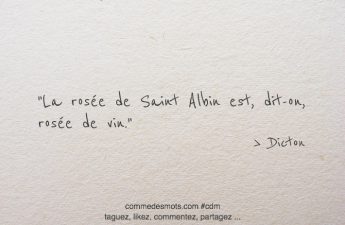 "La rosée de Saint Albin est, dit-on,
rosée de vin."
> Dicton
commedesmots.com #cdm
taguez, likez, commentez, partagez ...